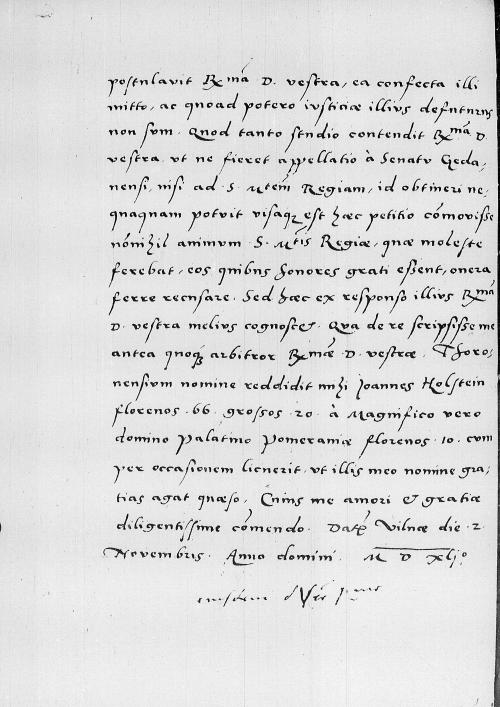 postulavit R.ma D. vestra, ea confecta illi
mitto, ac quoad potero iusticiæ illius defuturus
non sum. Quod tanto studio contendit R.ma D.
vestra, ut ne fieret appellatio à Senatu Geda-
nensi, nisi ad S. Mtem Regiam, id obtineri ne-
quaquam potuit visaq; est hæc petitio cõmovisse
nõnihil animum S. Mtis Regiæ, quæ moleste
ferebat, eos quibus honores grati essent, onera
ferre recusare. Sed hæc ex responso illius R.ma
D. vestra melius cognoscet. Qua de re scripsisse me
antea quoq; arbitror R.mæ D. vestræ. Thoro-
nensium nomine reddidit mihi Joannes Holstein
florenos .66. grossos .20. à Magnifico vero
domino Palatino Pomeraniæ florenos .10. cum
per occasionem licuerit, ut illis meo nomine gra-
tias agat quæso. Cuius me amori & gratiæ
diligentissime cõmendo. Dat. Vilnæ die .2.
Novembris. Anno domini. M D xlj°
eiusdem